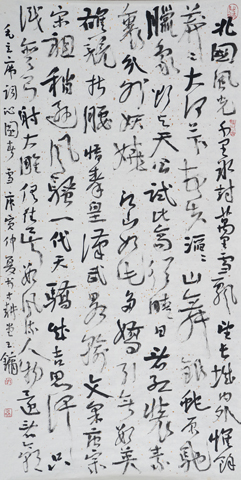 北国风光千里冰封万里雪飘望长城内外惟余
莽莽大河上下顿失滔滔山舞银蛇原驰
腊象欲与天公试比高须晴日看红装素
裹分外妖娆江山如此多娇引无数英
雄竞折腰惜秦皇汉武略输文采唐宗
宋祖稍逊风骚一代天骄成吉思汗只
识弯弓射大雕俱往矣数风流人物还看今朝
毛主席词沁园春雪庚寅仲夏书于静堂